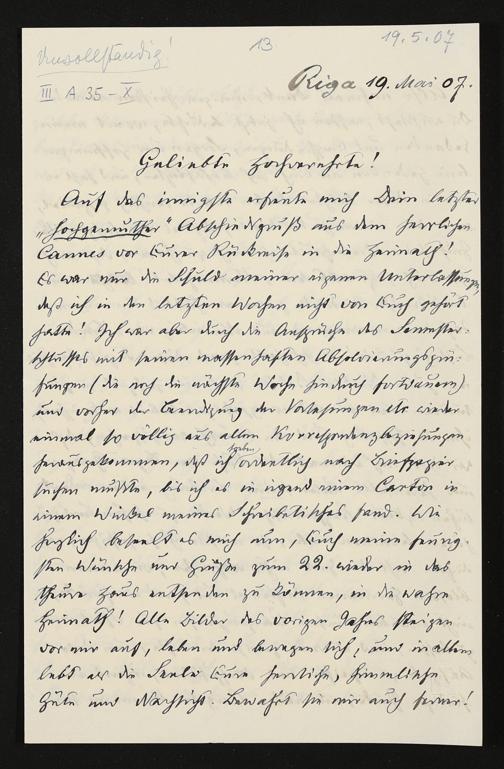 Unvollständig!
13
19.5.07
III A 35 – X
Riga 19. Mai 07.
Geliebte Hochverehrte!
Auf das innigste erfreute mich Dein letzter
„hochgemuther“ Abschiedsgruß aus dem herrlichen
Cannes vor Eurer Rückreise in die Heimath!
Es war nur die Schuld meiner eigenen Unterlassungen,
daß ich in den letzten Wochen nicht von Euch gehört
hatte! Ich war aber durch die Ansprüche des Semester-
schlusses mit seinen massenhaften Absolvierungsprü-
fungen (die noch die nächste Woche hindurch fortdauern)
und vorher der Beendigung der Vorlesungen etc wieder
einmal so völlig aus allen Korrespondenzbeziehungen
herausgekommen, daß ich eben ordentlich nach Briefpapier
suchen mußte, bis ich es in irgend einem Carton in
einem Winkel meines Schreibtisches fand. Wie
herzlich beseelt es mich nun, Euch meine innig-
sten Wünsche und Grüße zum 22. wieder in das
theure Haus entsenden zu können, in die wahre
Heimath! Alle Bilder des vorigen Jahres steigen
vor mir auf, leben und bewegen sich, und in allem
lebt als die Seele Eure herrliche, himmlische
Güte und Nachsicht. Bewahrt sie mir auch ferner!